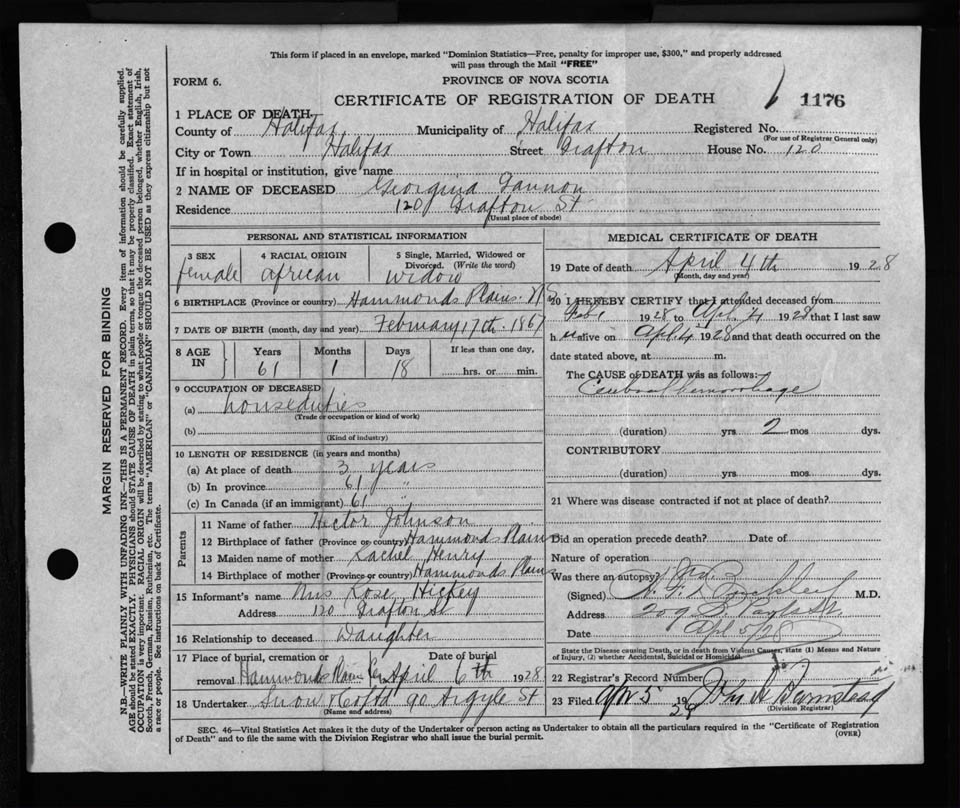 This form if placed in an envelope, marked "Dominion Statistics—Free, penalty for improper use, $300," and properly addressed
will pass through the Mail "FREE"
FORM 6.
PROVINCE OF NOVA SCOTIA
CERTIFICATE OF REGISTRATION OF DEATH
1176
1 PLACE OF DEATH
County of Halifax Municipality of Halifax Registered No.
(For use of Registrar General only)
City or Town Halifax Street Grafton House No. 120
If in hospital or institution, give name
2 NAME OF DECEASED Georgina Gannon
Residence 120 Grafton St
(Usual place of abode)
PERSONAL AND STATISTICAL INFORMATION
3 SEX 4 RACIAL ORIGIN 5 Single, Married, Widowed or
Divorced. (Write the word)
female african widow
6 BIRTHPLACE (Province or country) Hammonds Plains. N.S.
7 DATE OF BIRTH (month, day and year) February 17th. 1867
8 AGE IN Years Months Days If less than one day,
61 1 18 hrs. or min.
9 OCCUPATION OF DECEASED
(a) houseduties
(Trade or occupation or kind of work)
(b)
(Kind of industry)
10 LENGTH OF RESIDENCE (in years and months)
(a) At place of death 3 years
(b) In province 61 "
(c) In Canada (if an immigrant) 61 "
Parents
11 Name of father Hector Johnson
12 Birthplace of father (Province or country) Hammonds Plains
13 Maiden name of mother Rachel Henry
14 Birthplace of mother (Province or country) Hammonds Plains
15 Informant's name Mrs Rose Hickey
Address 120 Grafton St
16 Relationship to deceased Daughter
17 Place of burial, cremation or Date of burial
removal Hammonds Plains April 6th 1928
18 Undertaker Snow & Co Ltd 90 Argyle St
(Name and address)
MEDICAL CERTIFICATE OF DEATH
19 Date of death April 4th 1928
(Month, day and year)
20 I HEREBY CERTIFY that I attended deceased from
Feb 1 1928 to Apl 4 1928 that I last saw
h er alive on Apl 4 1928 and that death occurred on the
date stated above, at m.
The CAUSE of DEATH was as follows:
Cerebral hemorrhage
(duration) yrs 2 mos dys.
CONTRIBUTORY
(duration) yrs. mos. dys.
21 Where was disease contracted if not at place of death?
Did an operation precede death? Date of
Nature of operation
Was there an autopsy?
(Signed) M.D.
Address 209
Date Apl 5/28
State the Disease causing Death, or in death from Violent Causes, state (1) Means and Nature
of Injury, (2) whether Accidental, Suicidal or Homicidal.
22 Registrar's Record Number
23 Filed Apr 5 1928
(Division Registrar)
SEC. 46—Vital Statistics Act makes it the duty of the Undertaker or person acting as Undertaker to obtain all the particulars required in the "Certificate of Registration
of Death" and to file the same with the Division Registrar who shall issue the burial permit.
(OVER)
MARGIN RESERVED FOR BINDING
N.B.—WRITE PLAINLY WITH UNFADING INK—THIS IS A PERMANENT RECORD. Every item of information should be carefully supplied.
AGE should be stated EXACTLY. PHYSICIANS should STATE CAUSE OF DEATH in plain terms, so that it may be properly classified. Exact statement of
OCCUPATION is very important. RACIAL ORIGIN will be described by stating to what people or tongue the deceased person belonged, whether English, Irish,
Scotch, French, German, Russian, Ruthenian, etc. The terms "AMERICAN" or "CANADIAN" SHOULD NOT BE USED as they express citizenship but not
a race or people. See instructions on back of Certificate.